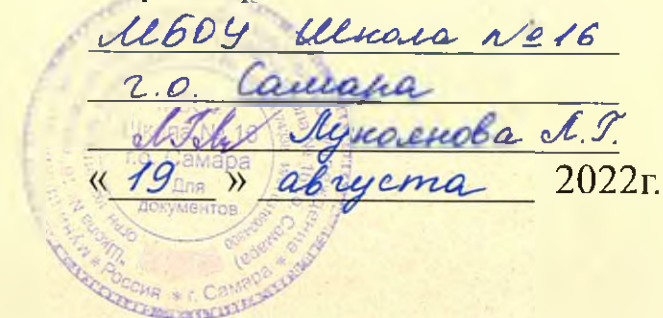 МБОУ Школа №16
г.о. Самара
Лукоянова Л.Г.
« 19 » августа 2022г.
Школа № 16
г.о. Самара
Для
документов
Россия * г. Самара *